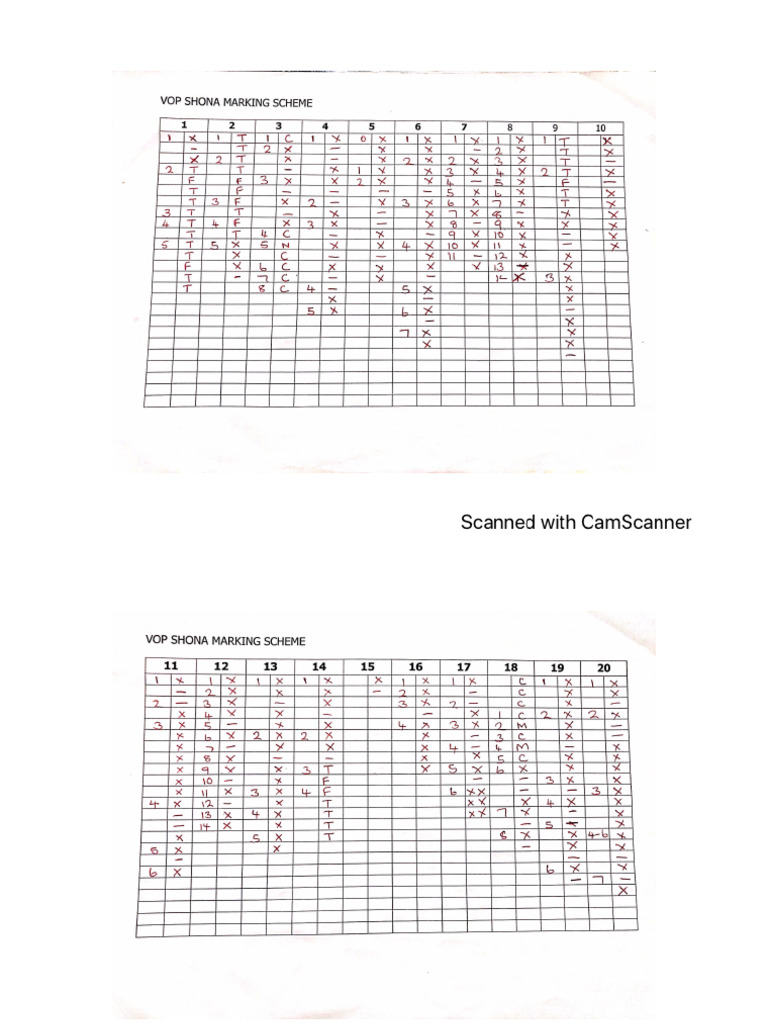 VOP SHONA MARKING SCHEME
1 2 3 4 5 6 7 8 9 10
1 X 1 T 1 C 1 X 0 X 1 X 1 X 1 X 1 T X
– T 2 X – X X – 2 X T X
X 2 T X – X 2 X 2 X 3 X T –
2 T T – X 1 X X 3 X 4 X 2 T X
F F 3 X X 2 X X 4 – 5 X F –
T F – – – – 5 X 6 X T X
T 3 F X 2 – X 3 X 6 X 7 X T X
3 T T – X – X 7 X 8 – X X
4 T 4 F X 3 X – X 8 – 9 X X X
T T 4 C – X – 9 X 10 X – X
5 T 5 X 5 N X X 4 X 10 X 11 X – X
T X C – – X 11 – 12 X X
F X 6 C X X X X 13 X X
T – 7 C – X – 14 X 3 X
T 8 C 4 – 5 X X
X – X
5 X 6 X –
– X
7 X X
X X
–
Scanned with CamScanner
VOP SHONA MARKING SCHEME
11 12 13 14 15 16 17 18 19 20
1 X 1 X 1 X 1 X X 1 X 1 X C 1 X 1 X
– 2 X X X – 2 X – C X X
2 – 3 X – X 3 X 2 – C X –
X 4 X X – X X 1 C 2 X 2 X
3 X 5 – X X 4 X 3 X 2 M X –
X 6 X 2 X 2 X X – 3 C X –
X 7 – X X X 4 – 4 M – X
X 8 X – – X X 5 C X X
X 9 X X 3 T X 5 X 6 X X X
X 10 – X F – – 3 X –
X 11 X 3 X 4 F 6 XX – X 3 X
4 X 12 – X T XX X 4 X –
– 13 X 4 X T XX 7 X – X
– 14 X X T – 5 – X
X 5 X T 8 X X 4-6 X
8 X X – X X
– – –
6 X 6 X X
– 7 –
X